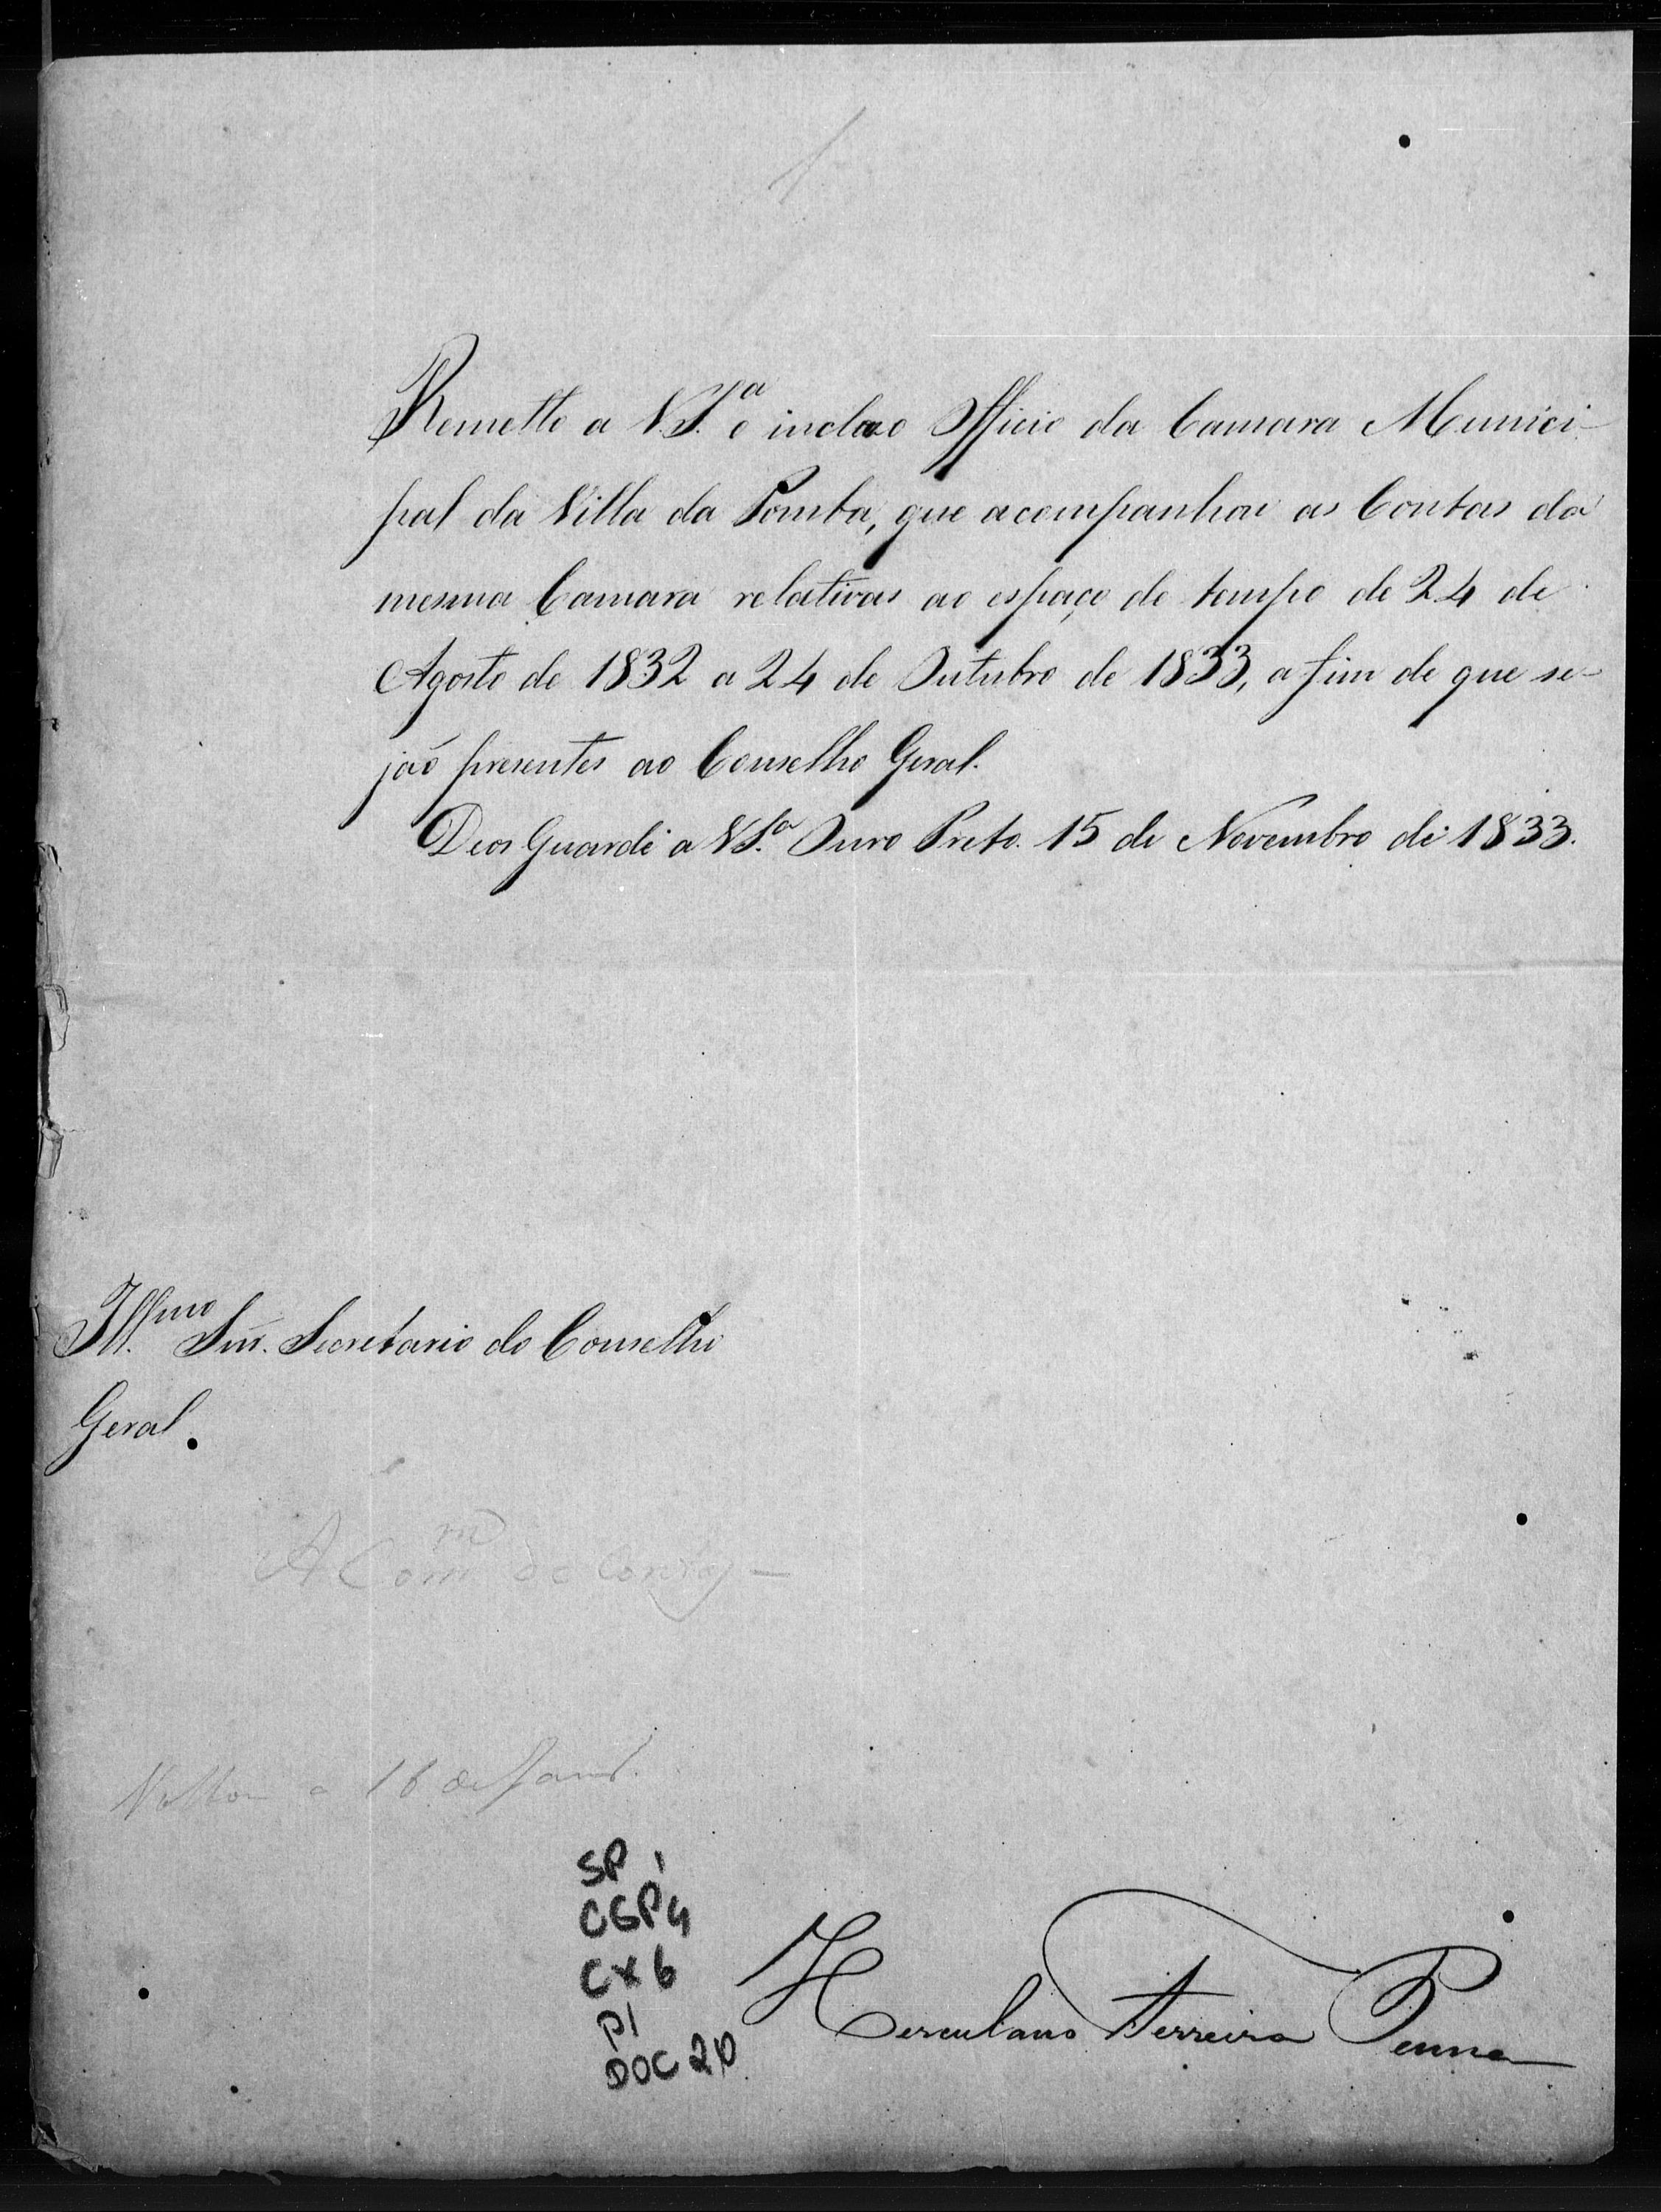 1
Remetto a V.S.ª o incluso Officio da Camara Munici-
pal da Villa da Pomba, que acompanhou as Contas da
mesma Camara relativas ao espaço de tempo de 24 de
Agosto de 1832 a 24 de Outubro de 1833, a fim de que se-
jaõ presentes ao Conselho Geral.
Deos Guarde a V.S.ª Ouro Preto. 15 de Novembro de 1833.
Ill.mo Snr. Secretario do Conselho
Geral.
A Com.m de Contas
a 16 de Janr.
SP 1
CGP4
CX6
P1
DOC 20
Herculano Ferreira Penna